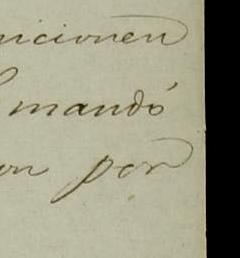 nicionen
mandó
on por